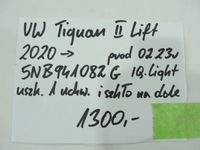 VW Tiguan II Lift
2020 → prod 02.23r
5NB941082G IQ.Light
uszk. 1 uchw. i szkło na dole
1300,-